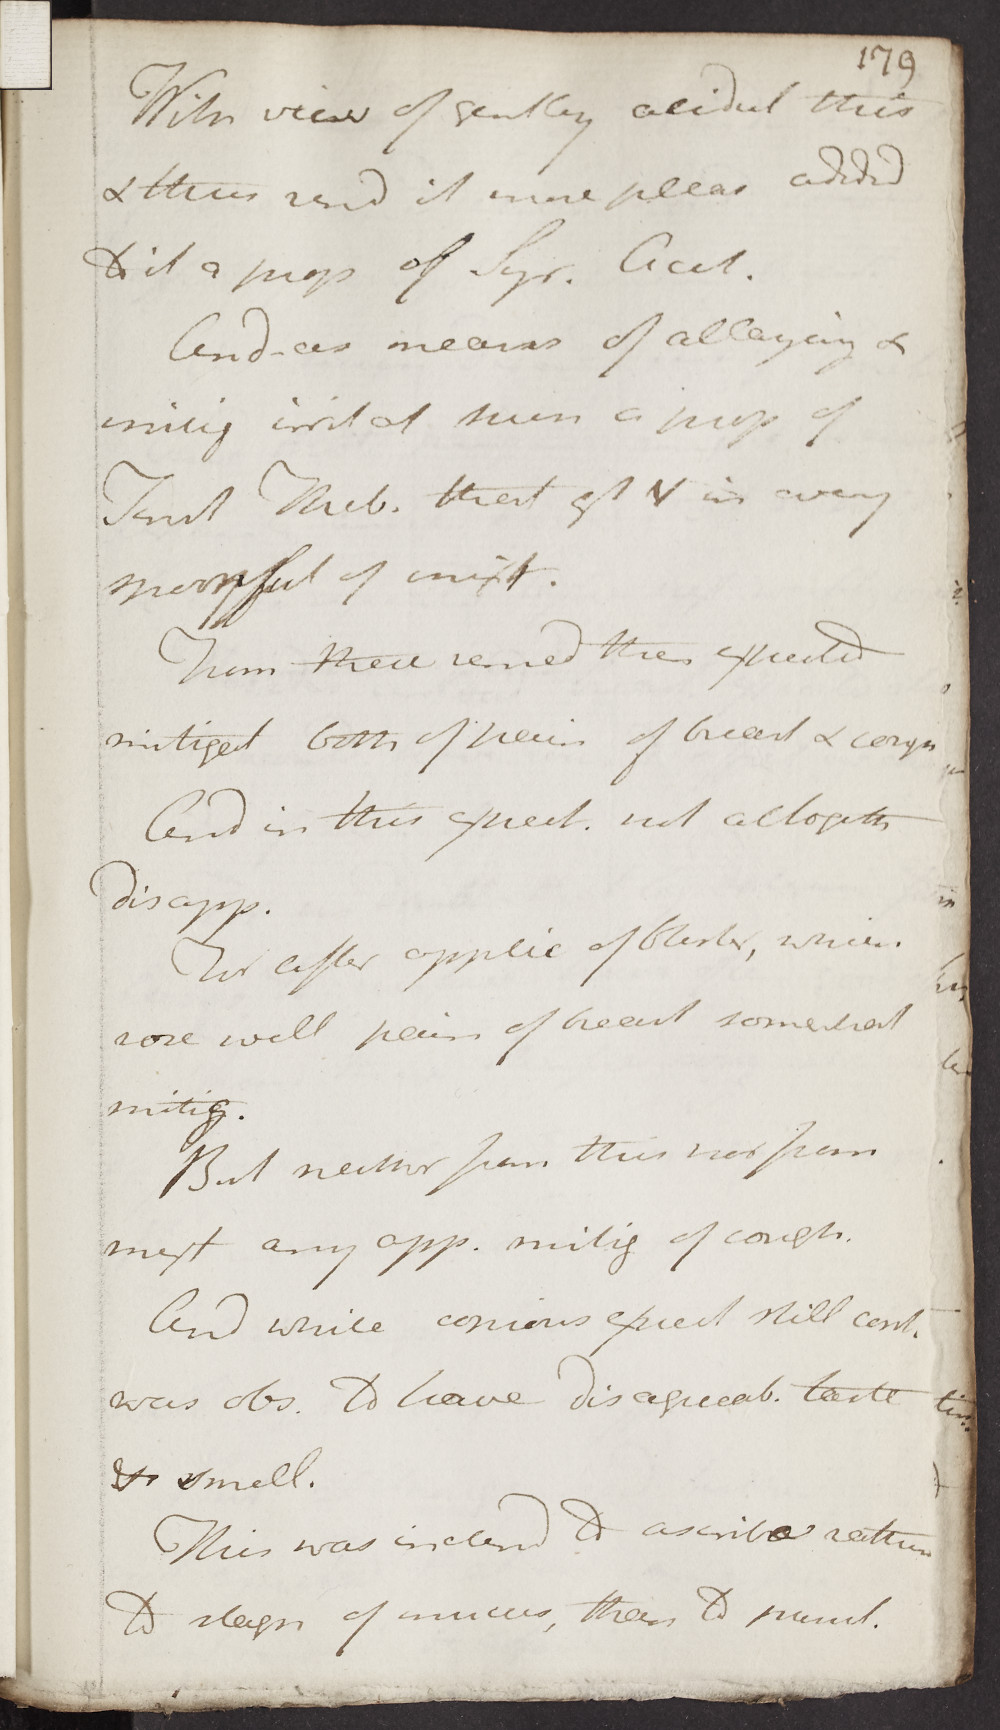 179
With view of gently acidul this
& thus rend it more pleas added
to it a prop of Syr. Acet.
And as means of allaying &
mitig irrit at same a prop of
Tinct Theb. that gt V in every
spoonful of mixt.
From these remed then expected
mitigat both of pain of breast & cough
And in this expect. not altogeth
disapp.
For after applic of blister, which
rose well pain of breast somewhat
mitig.
But neither from this nor from
mixt any app. mitig of cough.
And while copious expect still cont.
was obs. to have disagreeab. taste
& smell.
This was inclend to ascribe rather
to stagn of mucus, than to purul.